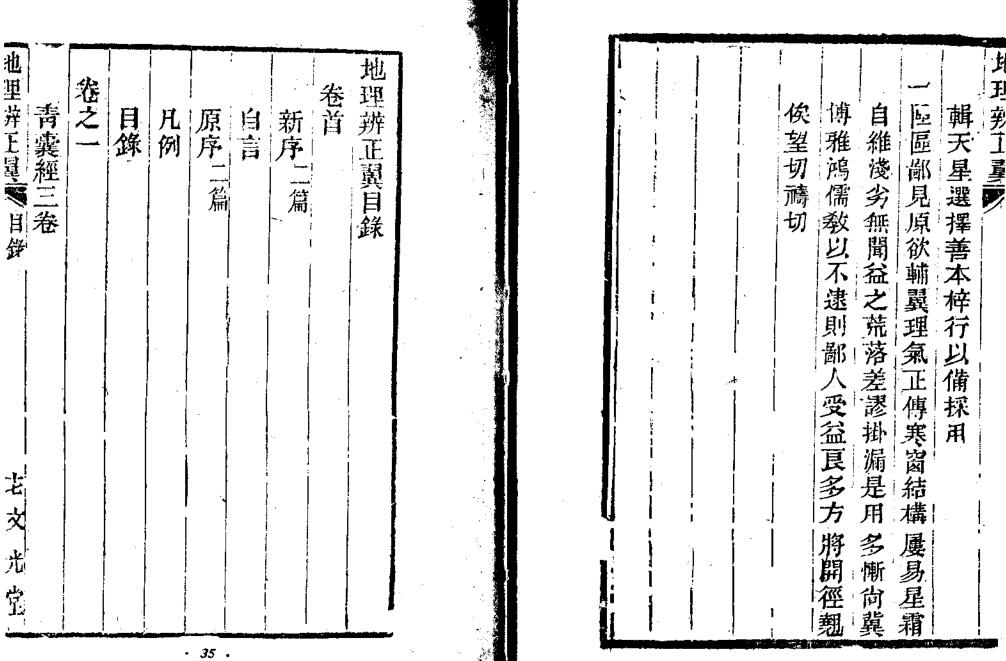 地理辨正翼
輯天星選擇善本梓行以備採用
一區區鄙見原欲輔翼理氣正傳寒窗結構屢易星霜
自維淺劣無聞益之荒落差謬掛漏是用多慚尙冀
博雅鴻儒敎以不逮則鄙人受益良多方將開徑翹
俟望切禱切
地理辨正翼目錄
卷首
新序二篇
自言
原序二篇
凡例
目錄
卷之一
青囊經三卷
地理辨正翼 目錄 文光堂
· 35 ·